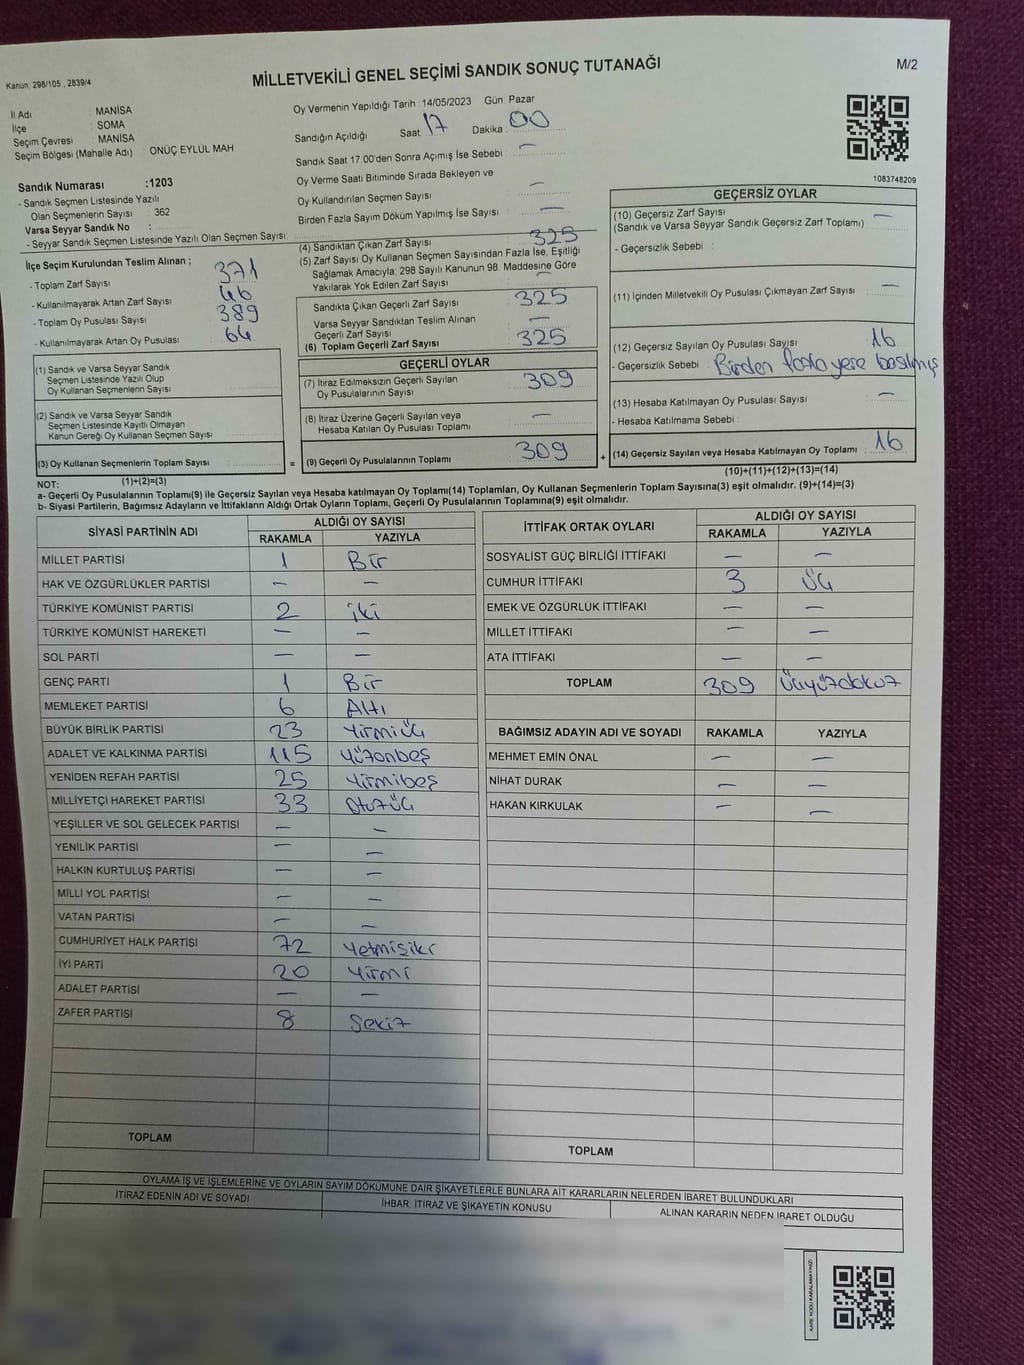 Kanun: 298/105 , 2839/4
MİLLETVEKİLİ GENEL SEÇİMİ SANDIK SONUÇ TUTANAĞI
M/2
İl Adı MANİSA
İlçe SOMA
Seçim Çevresi MANİSA
Seçim Bölgesi (Mahalle Adı) : ONÜÇ EYLÜL MAH
Oy Vermenin Yapıldığı Tarih : 14/05/2023 Gün: Pazar
Sandığın Açıldığı Saat 17 Dakika 00
Sandık Saat 17.00'den Sonra Açımış İse Sebebi : —
Oy Verme Saati Bitiminde Sırada Bekleyen ve
Oy Kullandırılan Seçmen Sayısı —
Birden Fazla Sayım Döküm Yapılmış İse Sayısı —
1083748209
Sandık Numarası :1203
- Sandık Seçmen Listesinde Yazılı
Olan Seçmenlerin Sayısı : 362
Varsa Seyyar Sandık No :
- Seyyar Sandık Seçmen Listesinde Yazılı Olan Seçmen Sayısı:
İlçe Seçim Kurulundan Teslim Alınan ;
- Toplam Zarf Sayısı 371
- Kullanılmayarak Artan Zarf Sayısı 46
- Toplam Oy Pusulası Sayısı 389
- Kullanılmayarak Artan Oy Pusulası 64
(1) Sandık ve Varsa Seyyar Sandık
Seçmen Listesinde Yazılı Olup
Oy Kullanan Seçmenlerin Sayısı
(2) Sandık ve Varsa Seyyar Sandık
Seçmen Listesinde Kayıtlı Olmayan
Kanun Gereği Oy Kullanan Seçmen Sayısı
(3) Oy Kullanan Seçmenlerin Toplam Sayısı
(1)+(2)=(3)
(4) Sandıktan Çıkan Zarf Sayısı 325
(5) Zarf Sayısı Oy Kullanan Seçmen Sayısından Fazla İse, Eşitliği
Sağlamak Amacıyla, 298 Sayılı Kanunun 98. Maddesine Göre
Yakılarak Yok Edilen Zarf Sayısı —
Sandıkta Çıkan Geçerli Zarf Sayısı 325
Varsa Seyyar Sandıktan Teslim Alınan
Geçerli Zarf Sayısı —
(6) Toplam Geçerli Zarf Sayısı 325
GEÇERLİ OYLAR
(7) İtiraz Edilmeksizin Geçerli Sayılan
Oy Pusulalarının Sayısı 309
(8) İtiraz Üzerine Geçerli Sayılan veya
Hesaba Katılan Oy Pusulası Toplamı —
= (9) Geçerli Oy Pusulalarının Toplamı 309 +
GEÇERSİZ OYLAR
(10) Geçersiz Zarf Sayısı —
(Sandık ve Varsa Seyyar Sandık Geçersiz Zarf Toplamı)
- Geçersizlik Sebebi :
(11) İçinden Milletvekili Oy Pusulası Çıkmayan Zarf Sayısı —
(12) Geçersiz Sayılan Oy Pusulası Sayısı 16
- Geçersizlik Sebebi Birden fazla yere basılmış
(13) Hesaba Katılmayan Oy Pusulası Sayısı —
- Hesaba Katılmama Sebebi :
(14) Geçersiz Sayılan veya Hesaba Katılmayan Oy Toplamı 16
(10)+(11)+(12)+(13)=(14)
NOT:
a- Geçerli Oy Pusulalarının Toplamı(9) ile Geçersiz Sayılan veya Hesaba katılmayan Oy Toplamı(14) Toplamları, Oy Kullanan Seçmenlerin Toplam Sayısına(3) eşit olmalıdır. (9)+(14)=(3)
b- Siyasi Partilerin, Bağımsız Adayların ve İttifakların Aldığı Ortak Oyların Toplamı, Geçerli Oy Pusulalarının Toplamına(9) eşit olmalıdır.
SİYASİ PARTİNİN ADI ALDIĞI OY SAYISI
RAKAMLA YAZIYLA
MİLLET PARTİSİ 1 Bir
HAK VE ÖZGÜRLÜKLER PARTİSİ — —
TÜRKİYE KOMÜNİST PARTİSİ 2 iki
TÜRKİYE KOMÜNİST HAREKETİ — —
SOL PARTİ — —
GENÇ PARTİ 1 Bir
MEMLEKET PARTİSİ 6 Altı
BÜYÜK BİRLİK PARTİSİ 23 Yirmiüç
ADALET VE KALKINMA PARTİSİ 115 Yüzonbeş
YENİDEN REFAH PARTİSİ 25 Yirmibeş
MİLLİYETÇİ HAREKET PARTİSİ 33 Otuzüç
YEŞİLLER VE SOL GELECEK PARTİSİ — —
YENİLİK PARTİSİ — —
HALKIN KURTULUŞ PARTİSİ — —
MİLLİ YOL PARTİSİ — —
VATAN PARTİSİ — —
CUMHURİYET HALK PARTİSİ 72 Yetmişiki
İYİ PARTİ 20 Yirmi
ADALET PARTİSİ — —
ZAFER PARTİSİ 8 Sekiz
TOPLAM
İTTİFAK ORTAK OYLARI ALDIĞI OY SAYISI
RAKAMLA YAZIYLA
SOSYALİST GÜÇ BİRLİĞİ İTTİFAKI — —
CUMHUR İTTİFAKI 3 Üç
EMEK VE ÖZGÜRLÜK İTTİFAKI — —
MİLLET İTTİFAKI — —
ATA İTTİFAKI — —
TOPLAM 309 Üçyüzdokuz
BAĞIMSIZ ADAYIN ADI VE SOYADI RAKAMLA YAZIYLA
MEHMET EMİN ÖNAL — —
NİHAT DURAK — —
HAKAN KIRKULAK — —
TOPLAM
OYLAMA İŞ VE İŞLEMLERİNE VE OYLARIN SAYIM DÖKÜMÜNE DAİR ŞİKAYETLERLE BUNLARA AİT KARARLARIN NELERDEN İBARET BULUNDUKLARI
İTİRAZ EDENİN ADI VE SOYADI İHBAR, İTİRAZ VE ŞİKAYETİN KONUSU ALINAN KARARIN NEDEN İBARET OLDUĞU
KARE KODU KARALAMAYINIZ!